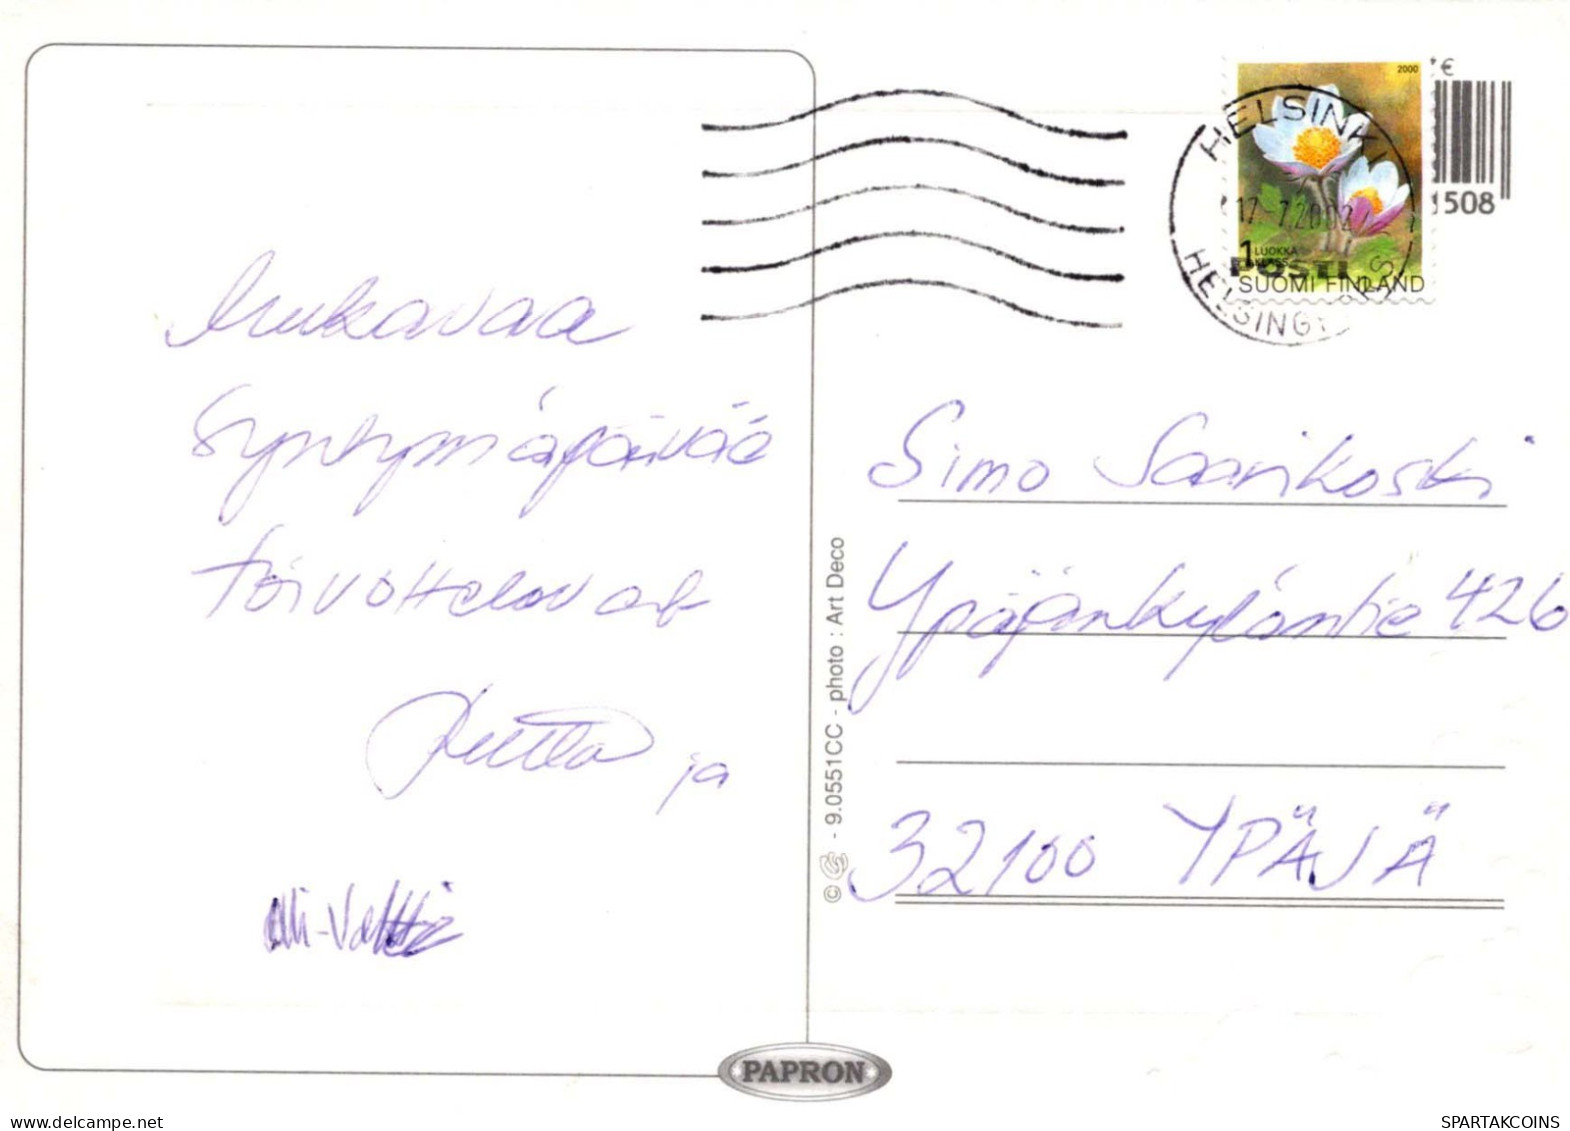 Mukavaa
Syntymäpäivää
toivottelevat
Jutta ja
Olli-Veltti
€
508
2000
HELSINKI
17-7.2002
1 LUOKKA
KLASS
POSTI
SUOMI FINLAND
HELSINGFORS
Simo Saarikoski
Ypäjänkyläntie 426
32100 YPÄJÄ
© - 9.0551CC - photo : Art Deco
PAPRON
delcampe.net
SPARTAKCOINS